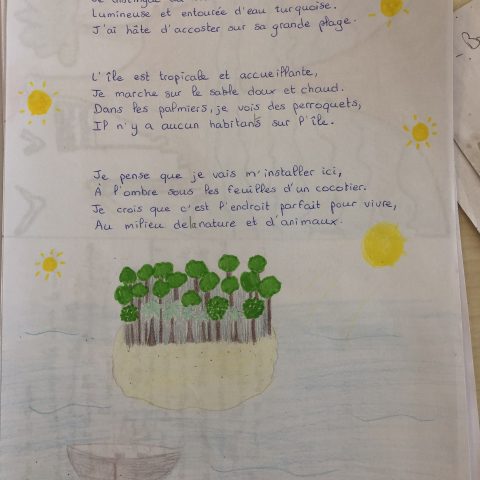 Lumineuse et entourée d'eau turquoise.
J'ai hâte d'accoster sur sa grande plage.
L'île est tropicale et accueillante,
Je marche sur le sable doux et chaud.
Dans les palmiers, je vois des perroquets,
Il n'y a aucun habitants sur l'île.
Je pense que je vais m'installer ici,
À l'ombre sous les feuilles d'un cocotier.
Je crois que c'est l'endroit parfait pour vivre,
Au milieu de la nature et d'animaux.